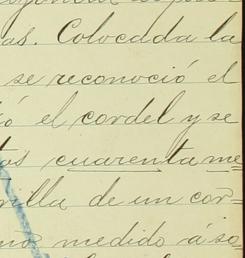 as. Colocada la
se reconoció el
ó el cordel y se
tos cuarenta me=
rilla de un cor-
mo medido á so